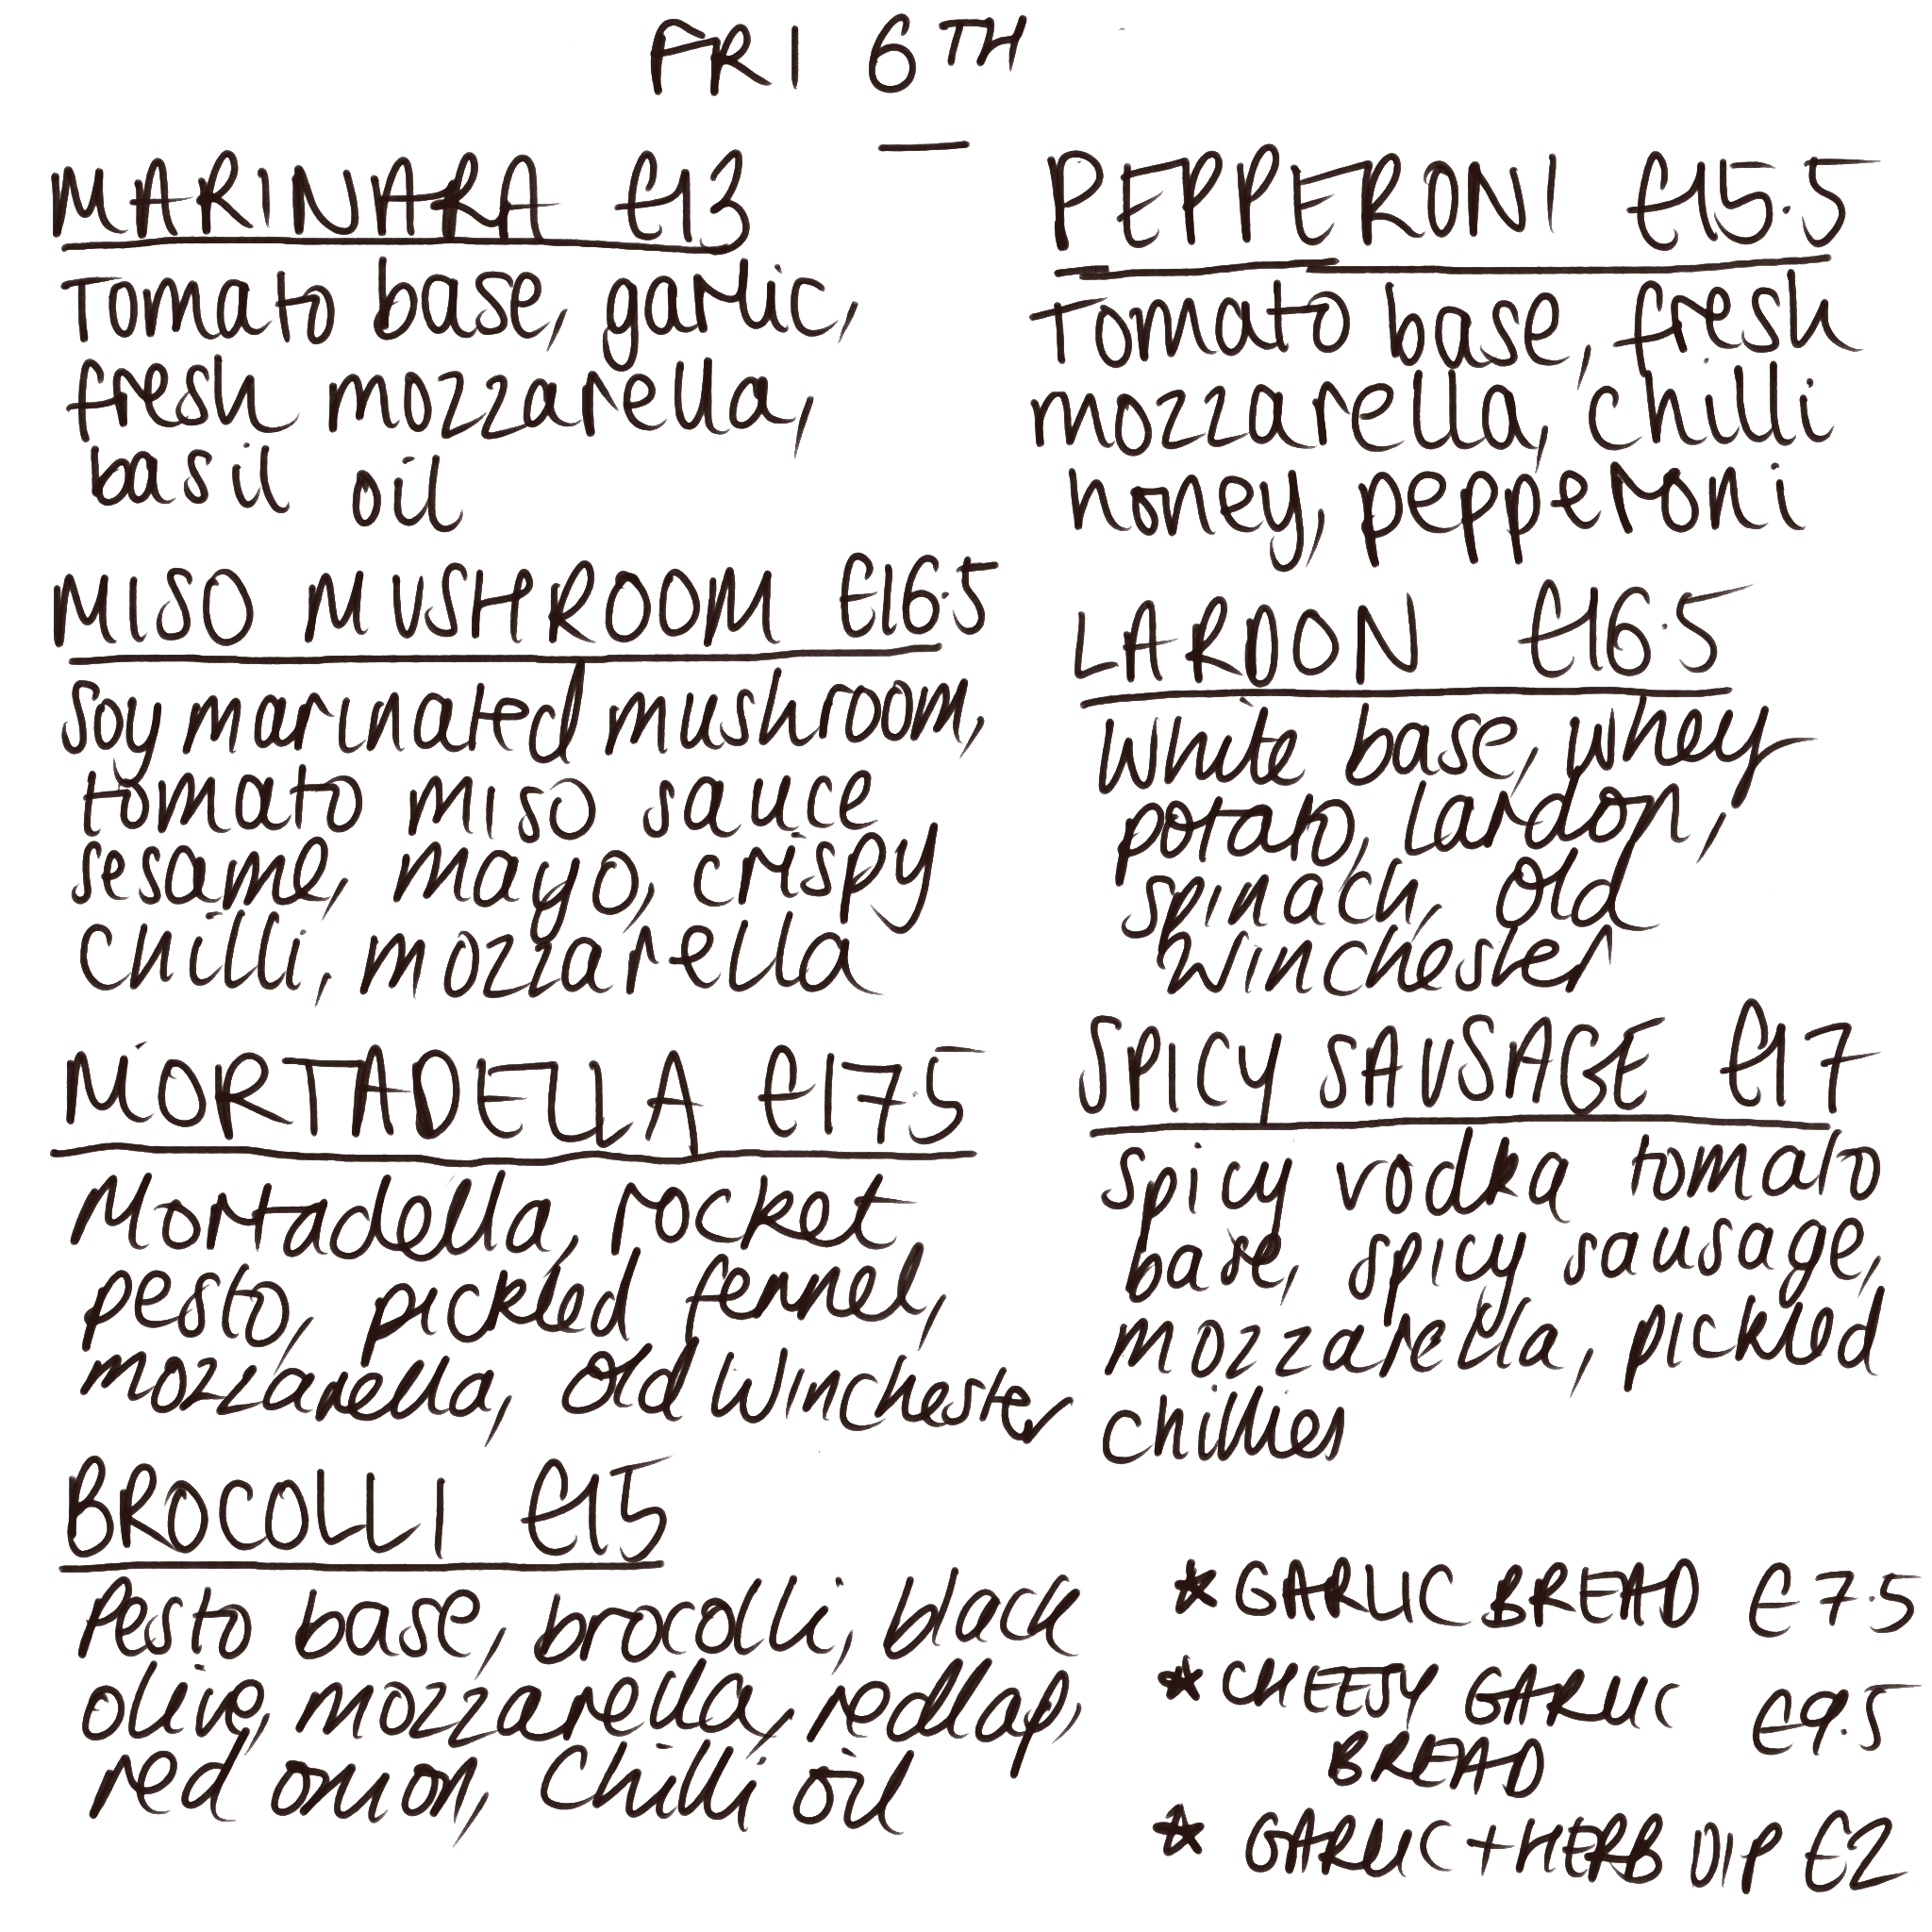 FRI 6TH
MARINARA £13
Tomato base, garlic,
fresh mozzarella,
basil oil
MISO MUSHROOM £16.5
Soy marinated mushroom,
tomato miso sauce
sesame, mayo, crispy
chilli, mozzarella
MORTADELLA £17.5
Mortadella, rocket
pesto, pickled fennel,
mozzarella, Old Winchester
BROCOLLI £15
Pesto base, brocolli, black
olive, mozzarella, redlap,
red onion, Chilli oil
PEPPERONI £15.5
Tomato base, fresh
mozzarella, chilli
honey, pepperoni
LARDON £16.5
White base, whey
potato, lardon,
spinach, Old
Winchester
SPICY SAUSAGE £17
Spicy vodka tomato
base, spicy sausage,
mozzarella, pickled
chillies
* GARLIC BREAD £7.5
* CHEESY GARLIC £9.5
BREAD
* GARLIC + HERB DIP £2